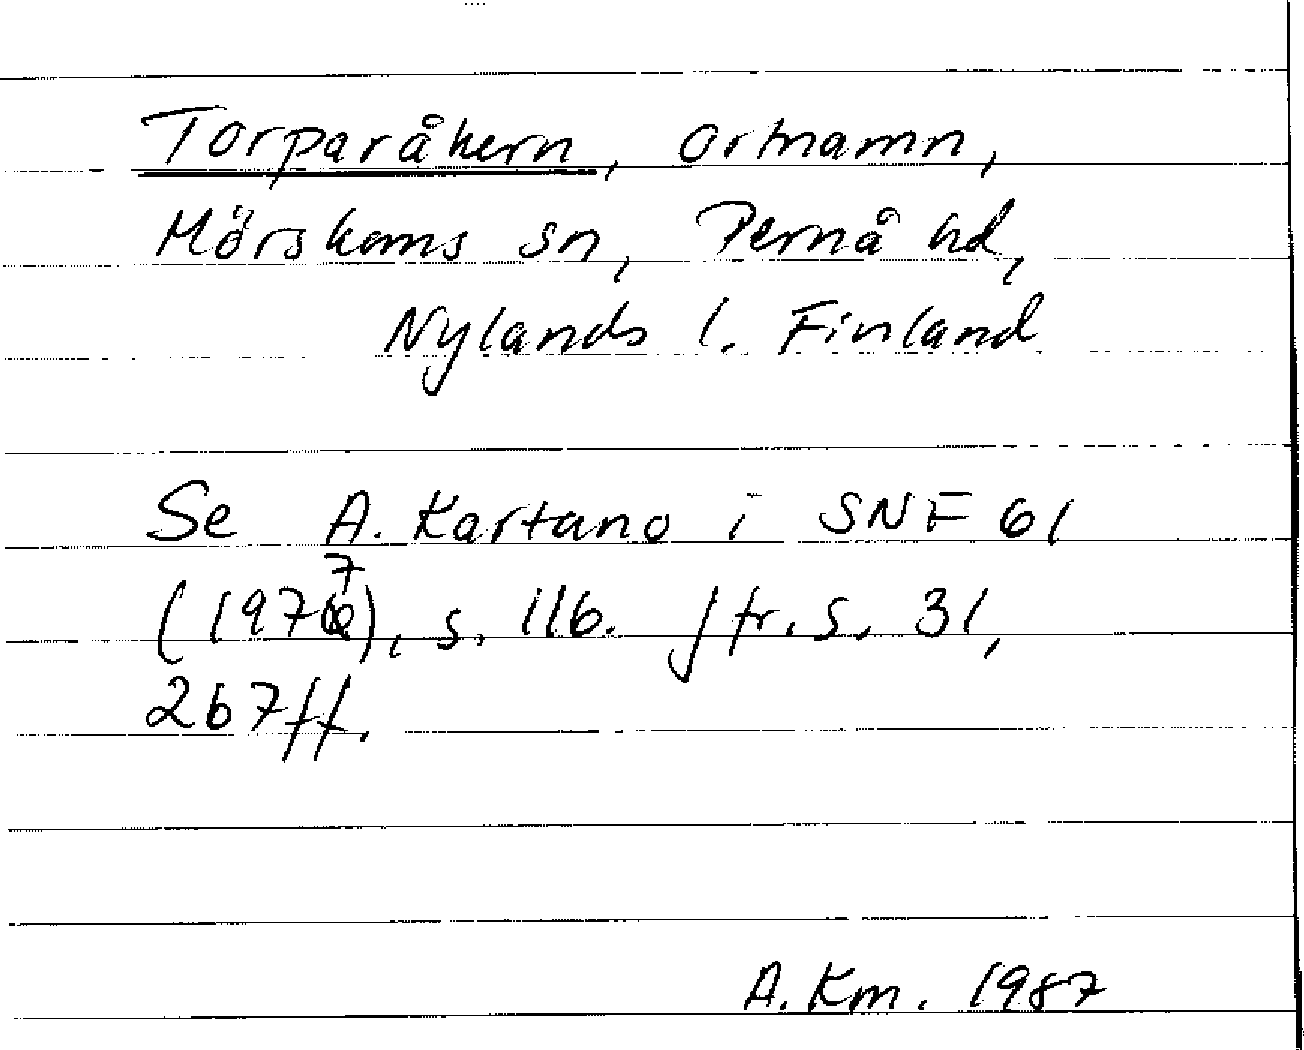 Torparåkern, ortnamn,
Mörskoms sn, Pernå hd,
Nylands l. Finland
Se A. Kartano i SNF 61
(1977), s. 116. Jfr. s. 31,
267ff.
A. Km. 1987